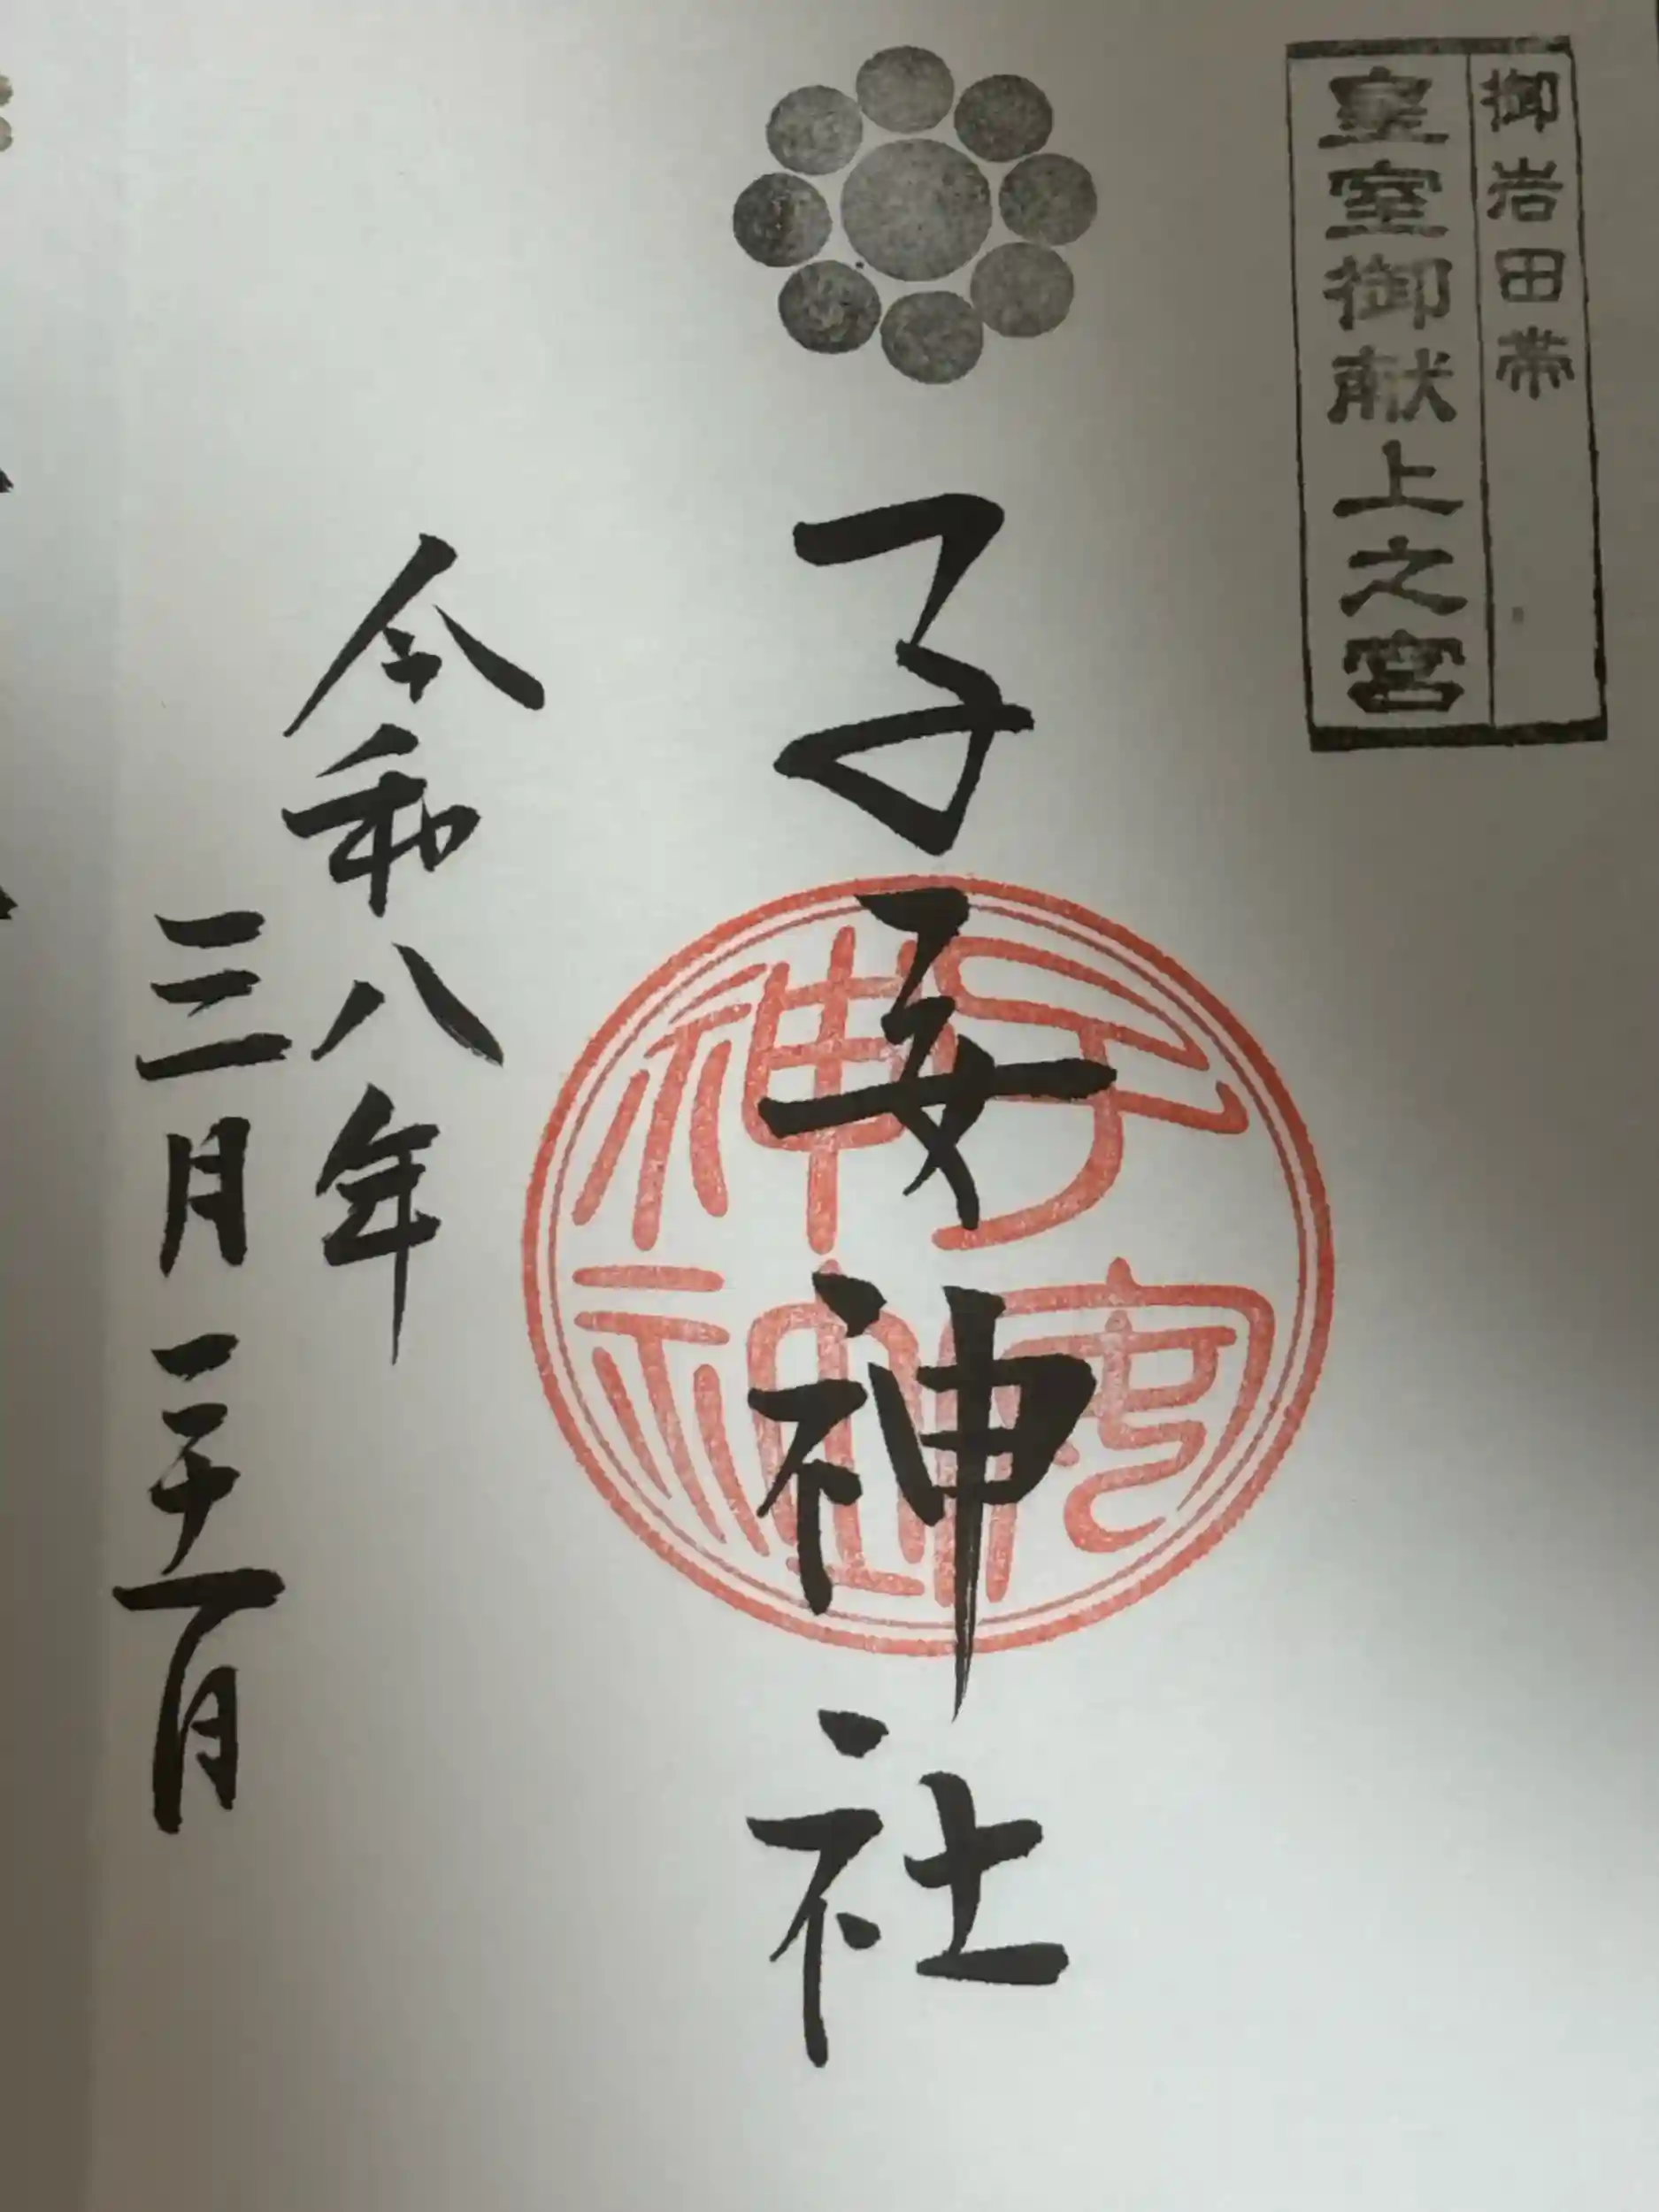 御岩田帯
皇室御献上之宮
子安神社
令和八年
三月二十一日